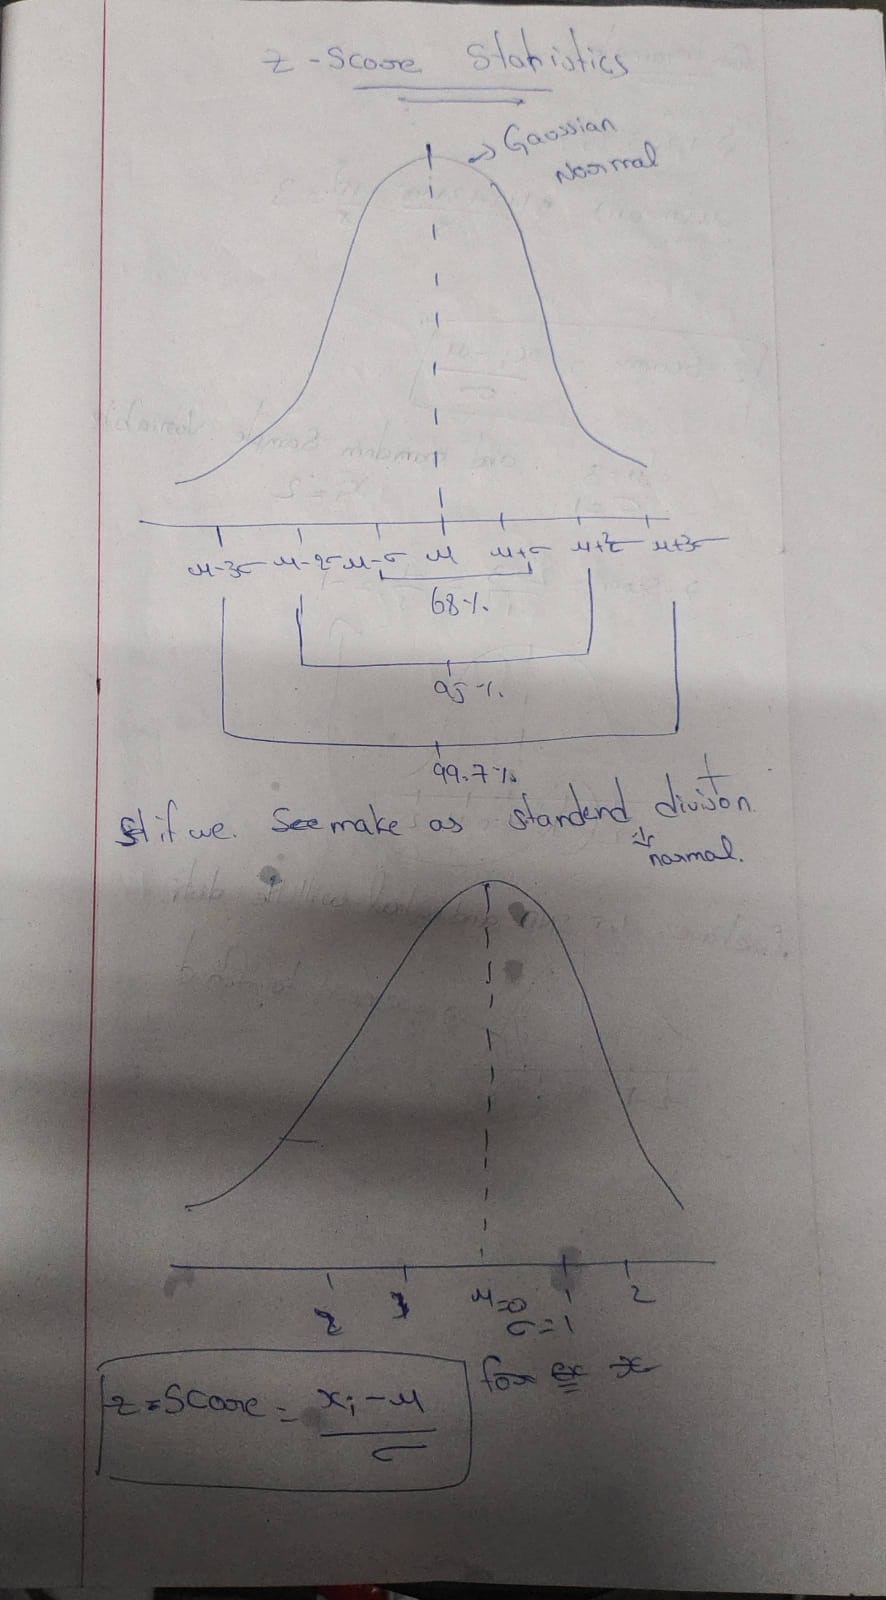 z-Score Statistics
→ Gaussian
Normal
μ-3σ μ-2σ μ-σ μ μ+σ μ+2σ μ+3σ
68%
95%
99.7%
if we. See make as standerd divison.
normal.
2 1 μ=0 1 2
σ=1
for ex x
z-Score = xi-μ
σ